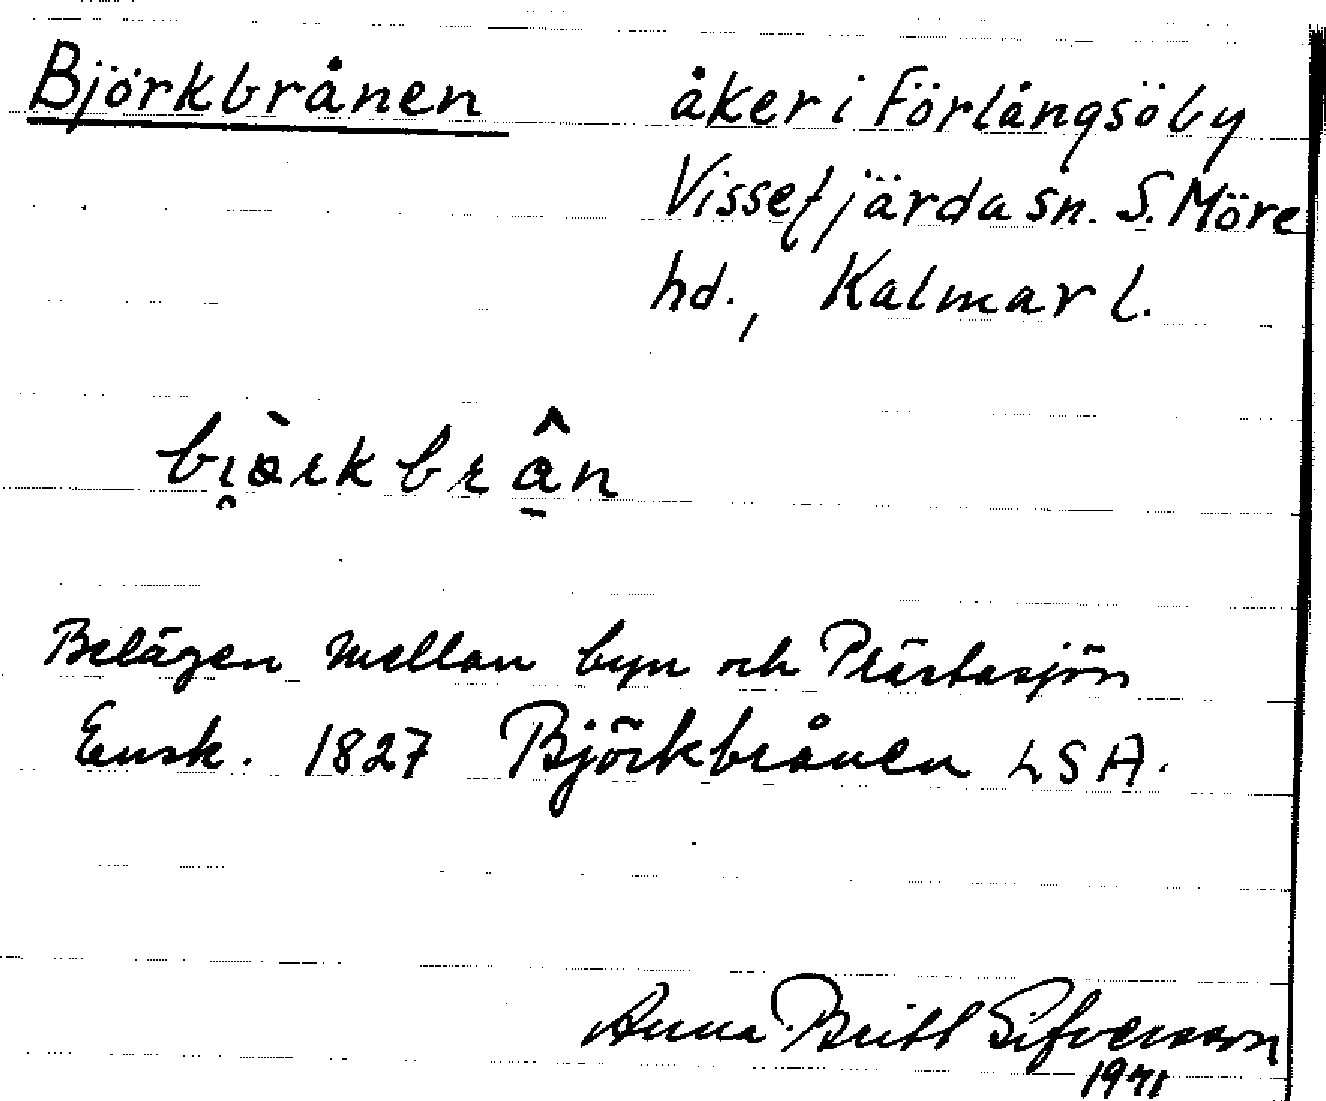 Björkbrånen åker i Förlångsöby
Vissefjärda sn. S. Möre
hd., Kalmar l.
bi̯ὰrkbrâ̠n
Belägen mellan byn och Plärtasjön
Ensk. 1827 Björkbrånen LSA.
Anna-Britt Sifversson
1941